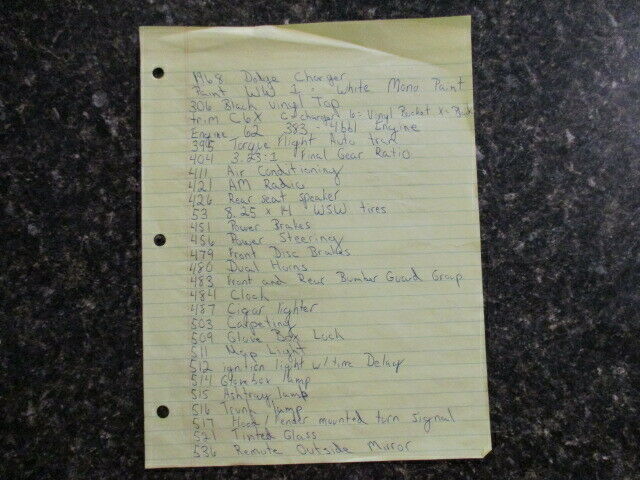 1968 Dodge Charger
Paint WW 1 : White Mono Paint
306 Black Vinyl Top
trim C6X C = charger 6 = Vinyl Bucket X = Black
Engine 62 383 - 4bbl Engine
395 Torque Flight Auto tran
404 3.23:1 Final Gear Ratio
411 Air Conditioning
421 AM Radio
426 Rear seat speaker
53 8.25 x 14 WSW tires
451 Power Brakes
456 Power Steering
479 Front Disc Brakes
480 Dual Horns
483 Front and Rear Bumber Guard Group
484 Clock
487 Cigar lighter
503 Carpeting
509 Glove Box Lock
511 Map Light
512 ignition light w/time Delay
514 Glovebox lamp
515 Ashtray lamp
516 Trunk lamp
517 Hood/fender mounted turn signal
521 Tinted Glass
536 Remote Outside Mirror